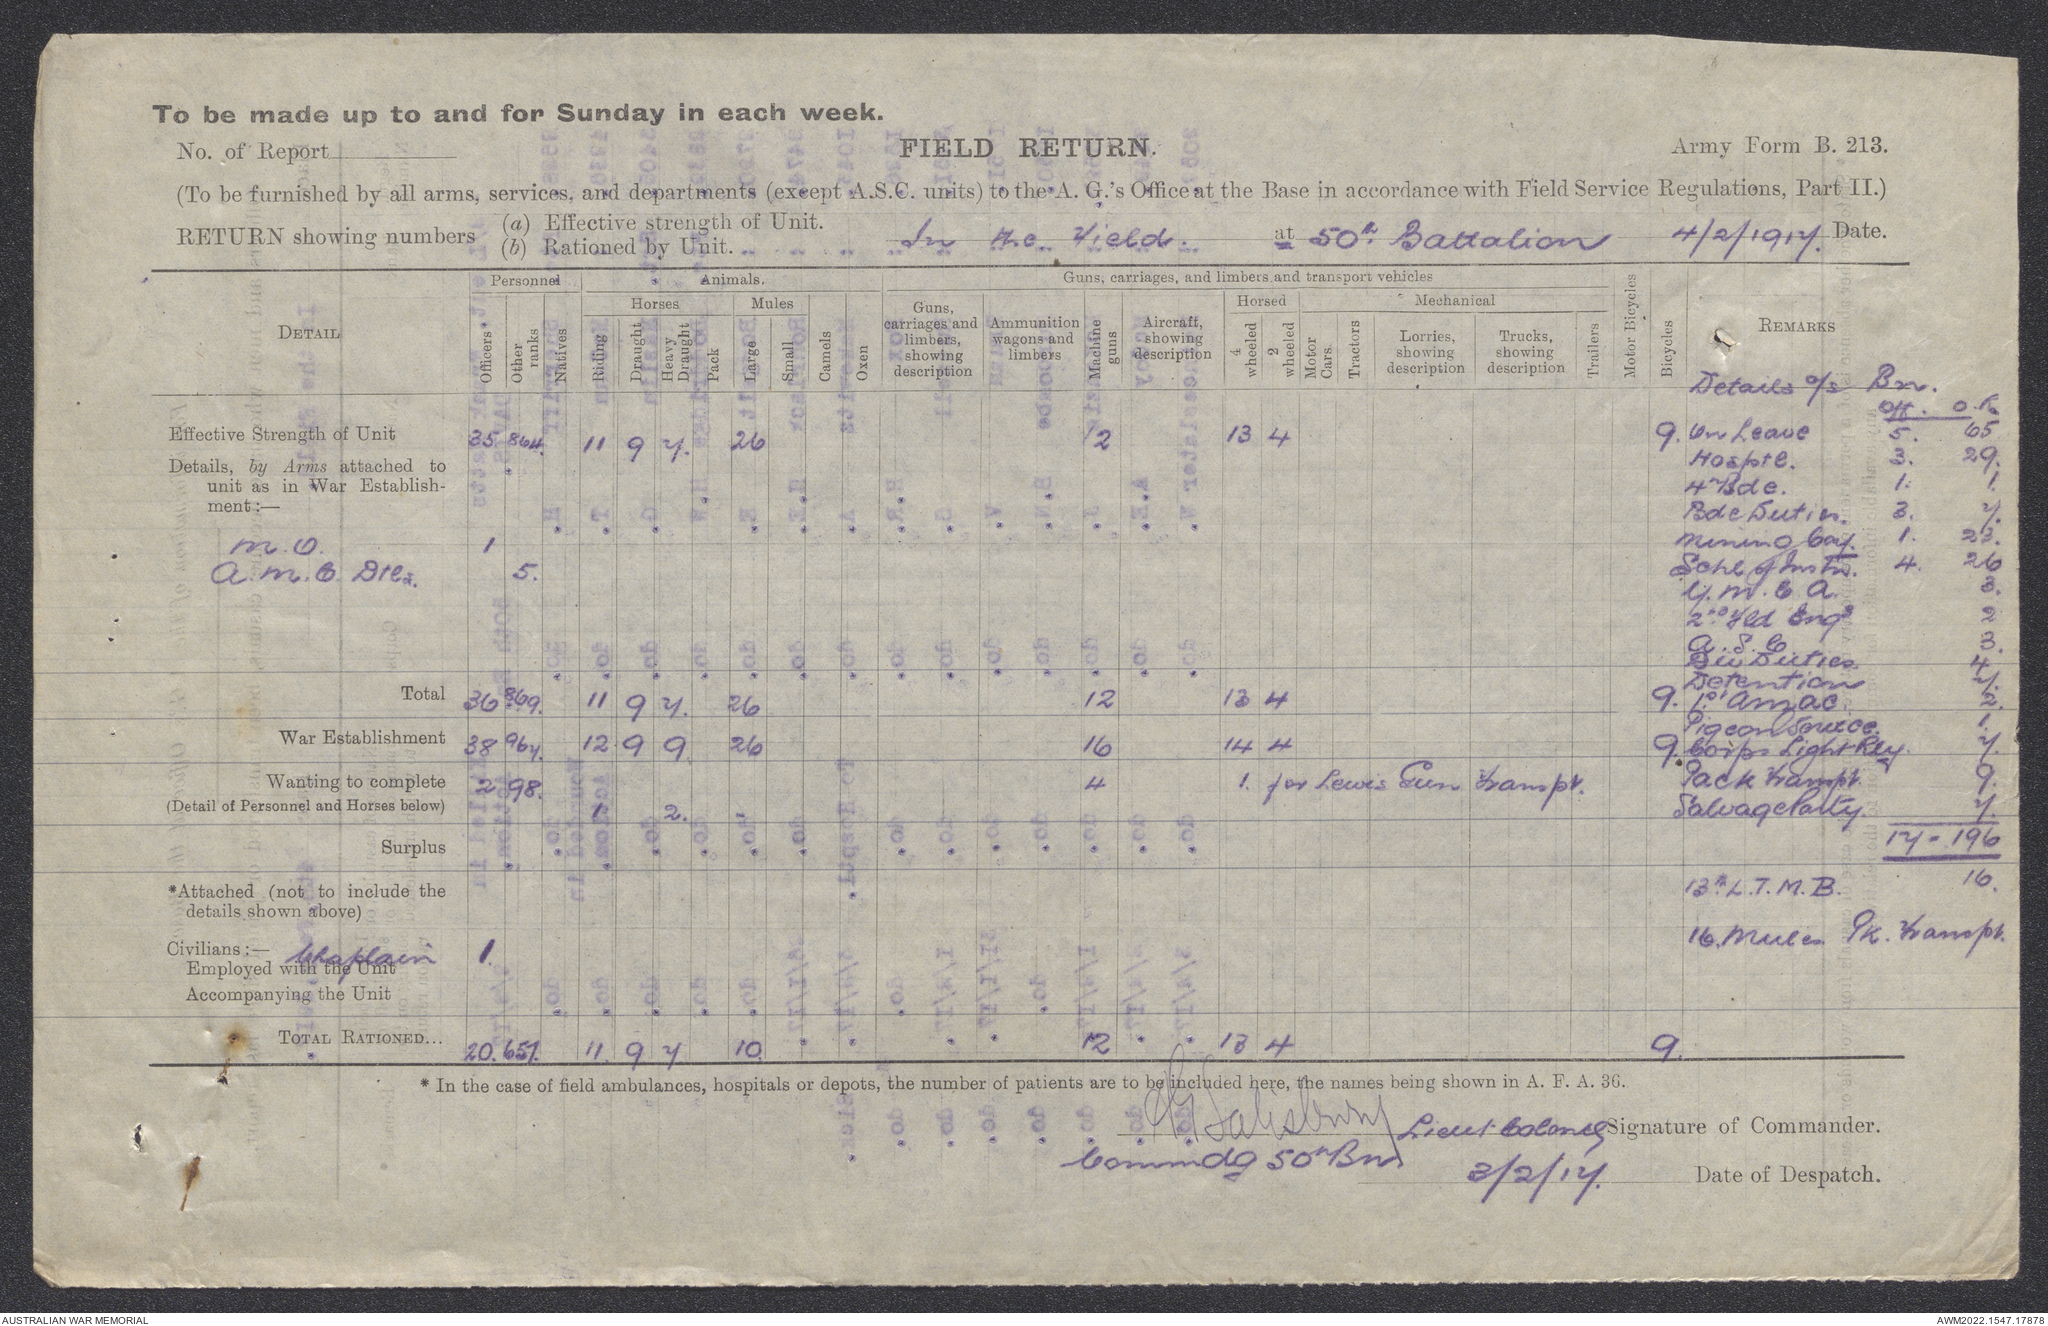 To be made up to and for Sunday in each week.
No. of Report
FIELD RETURN.
Army Form B. 213.
(To be furnished by all arms, services, and departments (except A.S.C. units) to the A. G.'s Office at the Base in accordance with Field Service Regulations, Part II.)
RETURN showing numbers
(a) Effective strength of Unit.
(b) Rationed by Unit.
In the Field. at 50th Battalion 4/2/1917. Date.
DETAIL
Personnel
Animals.
Guns, carriages, and limbers and transport vehicles
Horses
Mules
Horsed
Mechanical
Officers
Other ranks
Natives
Riding
Draught
Heavy Draught
Pack
Large
Small
Camels
Oxen
Guns, carriages and limbers, showing description
Ammunition wagons and limbers
Machine guns
Aircraft, showing description
4 wheeled
2 wheeled
Motor Cars
Tractors
Lorries, showing description
Trucks, showing description
Trailers
Motor Bicycles
Bicycles
REMARKS
Details o/s Bn.
Off. O.R.
Effective Strength of Unit 35 864. 11 9 7. 26 12 13 4 9. On Leave 5. 65
Details, by Arms attached to unit as in War Establishment :—
Hosptl. 3. 29.
4th Bde. 1. 1.
Bde Duties. 3. 7.
M.O. 1
Mining Coy. 1. 23.
A.M.C. Dtls. 5.
Schl of Instn. 4. 26
Y.M.C.A. 3.
2nd Fld Engs 2
A.S.C 3.
Div Duties 4.
Detention 7.
Total 36 869. 11 9 7. 26 12 13 4 9. 1st Anzac 2.
Pigeon Source. 1.
War Establishment 38 967. 12 9 9. 26 16 14 4 9. Corps Light Rly. 7.
Wanting to complete 2 98. 4 1. for Lewis Gun Transpt. Pack Transpt. 9.
(Detail of Personnel and Horses below) 1 2. Salvage Party. 7.
Surplus 17 - 196
*Attached (not to include the details shown above)
13th L.T.M.B. 16.
16. Mules Pk. Transpt.
Civilians :— Chaplain 1.
Employed with the Unit
Accompanying the Unit
TOTAL RATIONED... 20. 657. 11. 9 7 10. 12 13 4 9.
* In the case of field ambulances, hospitals or depots, the number of patients are to be included here, the names being shown in A. F. A. 36.
Salisbury Lieut Colonel Signature of Commander.
Commdg 50th Bn
3/2/17. Date of Despatch.
AUSTRALIAN WAR MEMORIAL
AWM2022.1547.17878